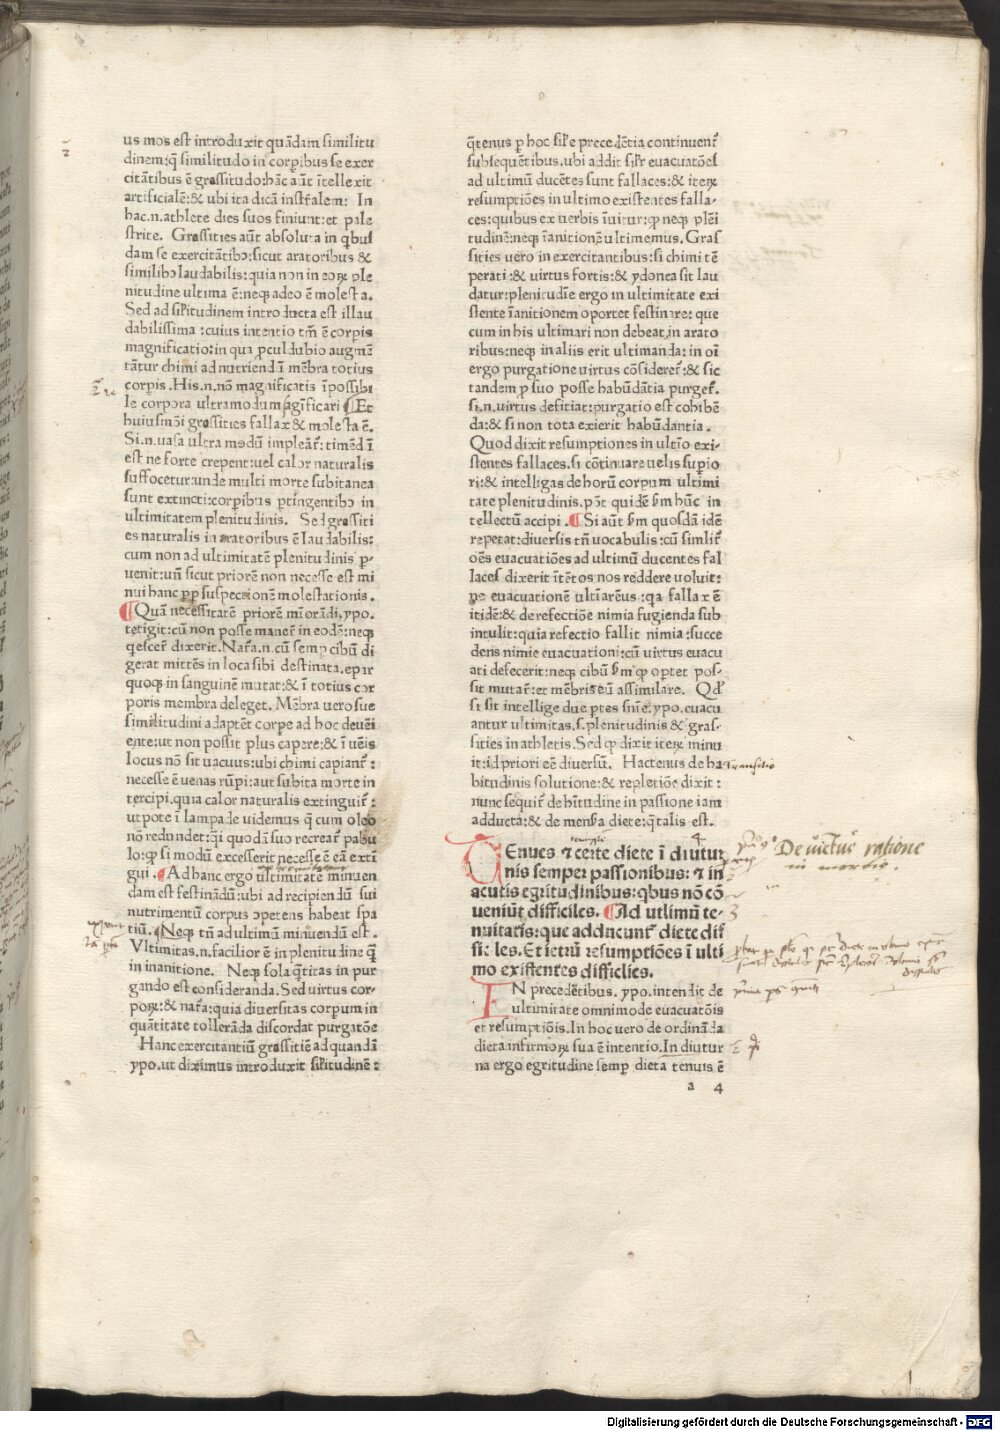 us mos est introduxit quādam similitu
dinem:q̄ similitudo in corp̄ibus se exer
citātibus ē grossitudo:hāc aūt ītellexit
artificialē:& ubi ita dicā instr̄alem: In
hac.n.athlete dies suos finiunt:et pale
strite. Grossities aūt absoluta in qbus
dam se exercitātibꝯ:sicut aratoribus &
similibꝯ laudabilis:quia non in eoꝝ ple
nitudine ultima ē:neqꝫ adeo ē molesta.
Sed ad sil̄itudinem introducta est illau
dabilissima :cuius intentio tm̄ ē corpis
magnificatio:in qua p̱culdubio augmē
tātur chimi ad nutriendā mēbra totius
corp̄is. His.n.nō magnificatis īpossibi
le corpora ultra modum magīficari ¶Et
huiusmōi grossities fallax & molesta ē.
Si.n.uasa ultra modū impleāt̄: timēdū
est ne forte crepent:uel calor naturalis
suffocetur:unde multi morte subitanea
sunt extincti:corp̄ibus ptīngentibꝯ in
ultimitatem plenitudinis. Sed grossiti
es naturalis in aratoribus ē laudabilis:
cum non ad ultimitatē plenitudinis p̱-
uenit:un̄ sicut priorē non necesse est mi
nui hanc pp̱ suspectionē molestationis.
¶Quā necessitatē priorē mīorādi,ypo.
tetigit:cū non posse maner̄ in eodē:neqꝫ
qescer̄ dixerit. Nat̄a.n.cū semp̱ cibū di
gerat mittēs in loca sibi destinata.epar
quoqꝫ in sanguinē mutat:& ī totius cor
poris membra deleget. Mēbra uero sue
similitudini adaptēt corpe ad hoc deuēi
ente:ut non possit plus capere:& ī uēis
locus nō sit uacuus:ubi chimi capiant̄ :
necesse ē uenas rūpi:aut subita morte in
tercipi.quia calor naturalis extinguit̄ :
ut pote ī lampade uidemus q̄ cum oleo
nō redundet:q̄i quodā suo recreat̄ pabu
lo:qꝫ si modū excesserit necesse ē eā exti
gui .¶Ad hanc ergo ultimitatē minuen
dam est festinādū:ubi ad recipiendū sui
nutrimentū corpus opetens habeat spa
tiū. ¶Neqꝫ tn̄ ad ultimū minuendū est.
Vltimitas.n.facilior ē in plenitudine q̄
in inanitione. Neqꝫ sola q̄titas in pur
gando est consideranda. Sed uirtus cor
porꝫ:& nat̄a:quia diuersitas corpum in
quātitate tollerāda discordat purgatōe
Hanc exercitantiū grossitiē ad quandā
ypo.ut diximus introduxit sil̄itudinē :
q̄tenus p̱ hoc sil̄r e precedētia continuent̄
subsequētibus,ubi addit sil̄r euacuatōes
ad ultimū ducētes sunt fallaces:& iteꝝ
resumptiōes in ultimo existentes falla-
ces:quibus ex uerbis īuitur:qꝫ neqꝫ plēi
tudinē:neqꝫ īanitionē ultimemus. Gros
sities uero in exercitantibus:si chimi tē
perati :& uirtus fortis:& ydonea sit lau
datur:plenitudīe ergo in ultimitate exi
stente īanitionem oportet festinare: que
cum in his ultimari non debeat,in arato
ribus:neqꝫ in aliis erit ultimanda: in oī
ergo purgatione uirtus cōsideret̄:& sic
tandem p̱ suo posse habūdātia purget̄.
si.n.uirtus defitiat:purgatio est cohibē
da:& si non tota exierit habūdantia.
Quod dixit resumptiones in ultīo exi-
stentes fallaces.si cōtinuare uelis supio
ri:& intelligas de horū corpum ultīmi
tate plenitudinis.pōt quidē ẜm hūc in
tellectū accipi .¶Si aūt ẜm quosdā idē
repetat:diuersis tn̄ uocabulis :cū simlit̄
oēs euacuatiōes ad ultimū ducentes fal
laces dixerit ītētos nos reddere uoluit:
ne euacuationē ultīarēus :qa fallax ē
itidē:& de refectiōe nimia fugienda sub
intulit:quia refectio fallit nimia :succe
dens nimie euacuationi:cū uirtus euacu
ati defecerit:neqꝫ cibū ẜm qꝫ optet pos-
sit mutar̄:et mēbris eū assimilare. Qd̄
si sit intellige due ptes sīnē,ypo.euacu
antur ultimitas.s.plenitudinis & gros-
sities in athletis.Sed qꝫ dixit iteꝝ minu
it:id priori eē diuersū. Hactenus de ha
bitudinis solutione:& repletiōe dixit :
nunc sequit̄ de hītudine in passione iam
adducta:& de mensa diete:q̄talis est.
Transitio
TEnues ⁊ certe diete ī diutur
nis semper passionibus: ⁊ in
acutis egritudinibus: qbus nō cō
ueniūt difficiles. ¶Ad utlimū te-
nuitatis:que adducunt̄ diete dif
fici les. Et iterū resumptiōes ī ulti
mo existentes difficlies.
De victus ratione
in morbis.
IN precedētibus.ypo.intendit de
ultimitate omnimode euacuatōis
et resumptiōis.In hoc uero de ordināda
dieta infirmoꝝ sua ē intentio.In diutur
na ergo egritudine semp̱ dieta tenuis ē
a 4
Digitalisierung gefördert durch die Deutsche Forschungsgemeinschaft - DFG